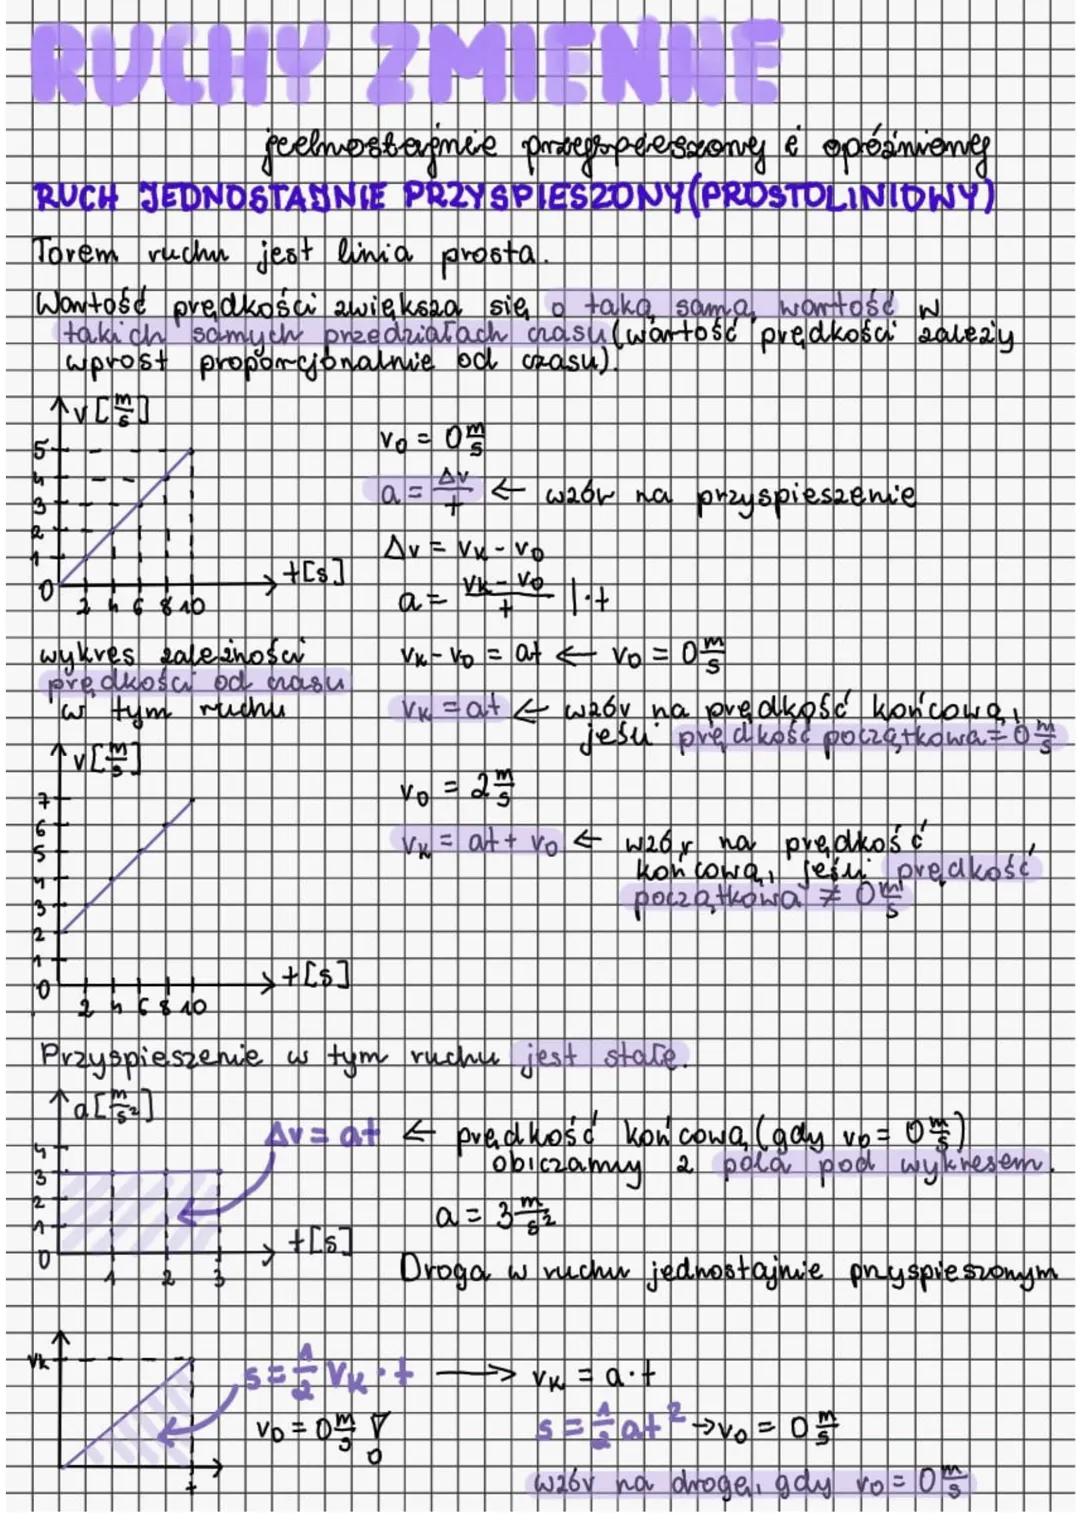 RUCHY ZMIENNE
jednostajnie przyspieszony i opóźniony
RUCH JEDNOSTAJNIE PRZYSPIESZONY (PROSTOLINIOWY)
Torem ruchu jest linia prosta.
Wartość prędkości zwiększa się o taką samą wartość w
takich samych przedziałach czasu (wartość prędkości zależy
wprost proporcjonalnie od czasu).
v [m/s]
5
4
3
2
1
0
2 4 6 8 10
t [s]
v₀ = 0 m/s
a = Δv/t ← wzór na przyspieszenie
Δv = vₖ - v₀
a = (vₖ - v₀)/t |·t
wykres zależności
prędkości od czasu
w tym ruchu
vₖ - v₀ = at ← v₀ = 0 m/s
vₖ = at ← wzór na prędkość końcową,
jeśli prędkość początkowa = 0 m/s
v [m/s]
7
6
5
4
3
2
1
0
2 4 6 8 10
t [s]
v₀ = 2 m/s
vₖ = at + v₀ ← wzór na prędkość
końcową, jeśli prędkość
początkowa ≠ 0 m/s
Przyspieszenie w tym ruchu jest stałe.
a [m/s²]
4
3
2
1
0
1 2 3
t [s]
Δv = at ← prędkość końcową (gdy v₀ = 0 m/s)
obliczamy z pola pod wykresem.
a = 3 m/s²
Droga w ruchu jednostajnie przyspieszonym
vₖ
t
s = ½ vₖ · t → vₖ = a · t
v₀ = 0 m/s !
s = ½ at² → v₀ = 0 m/s
wzór na drogę, gdy v₀ = 0 m/s